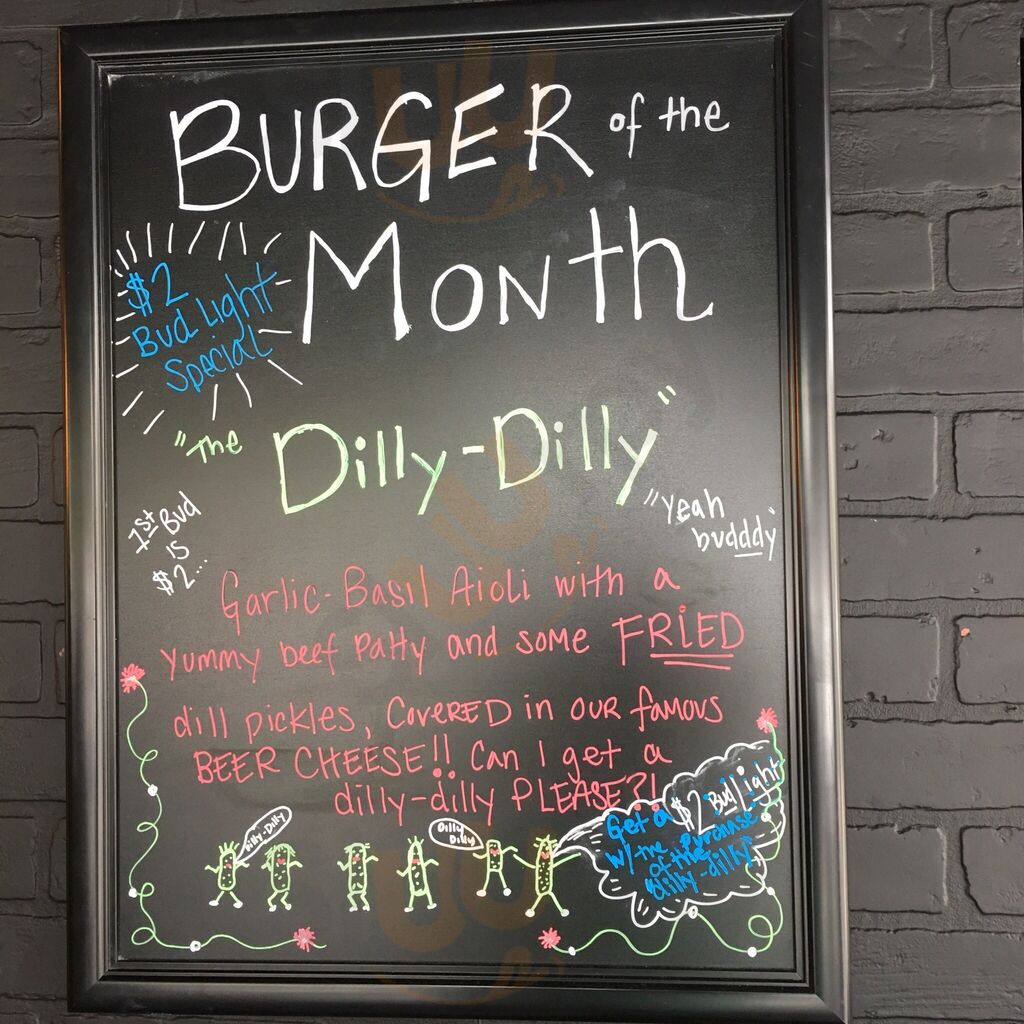 BURGER of the
Month
$2
Bud Light
Special
"The Dilly-Dilly"
"yeah
budddy"
1st Bud
is
$2...
Garlic-Basil Aioli with a
yummy beef patty and some FRIED
dill pickles, COVERED in our famous
BEER CHEESE!! Can I get a
dilly-dilly PLEASE?!
Dilly-Dilly
Dilly
Dilly
Get a $2 Bud Light
w/ the purchase
of the
dilly-dilly